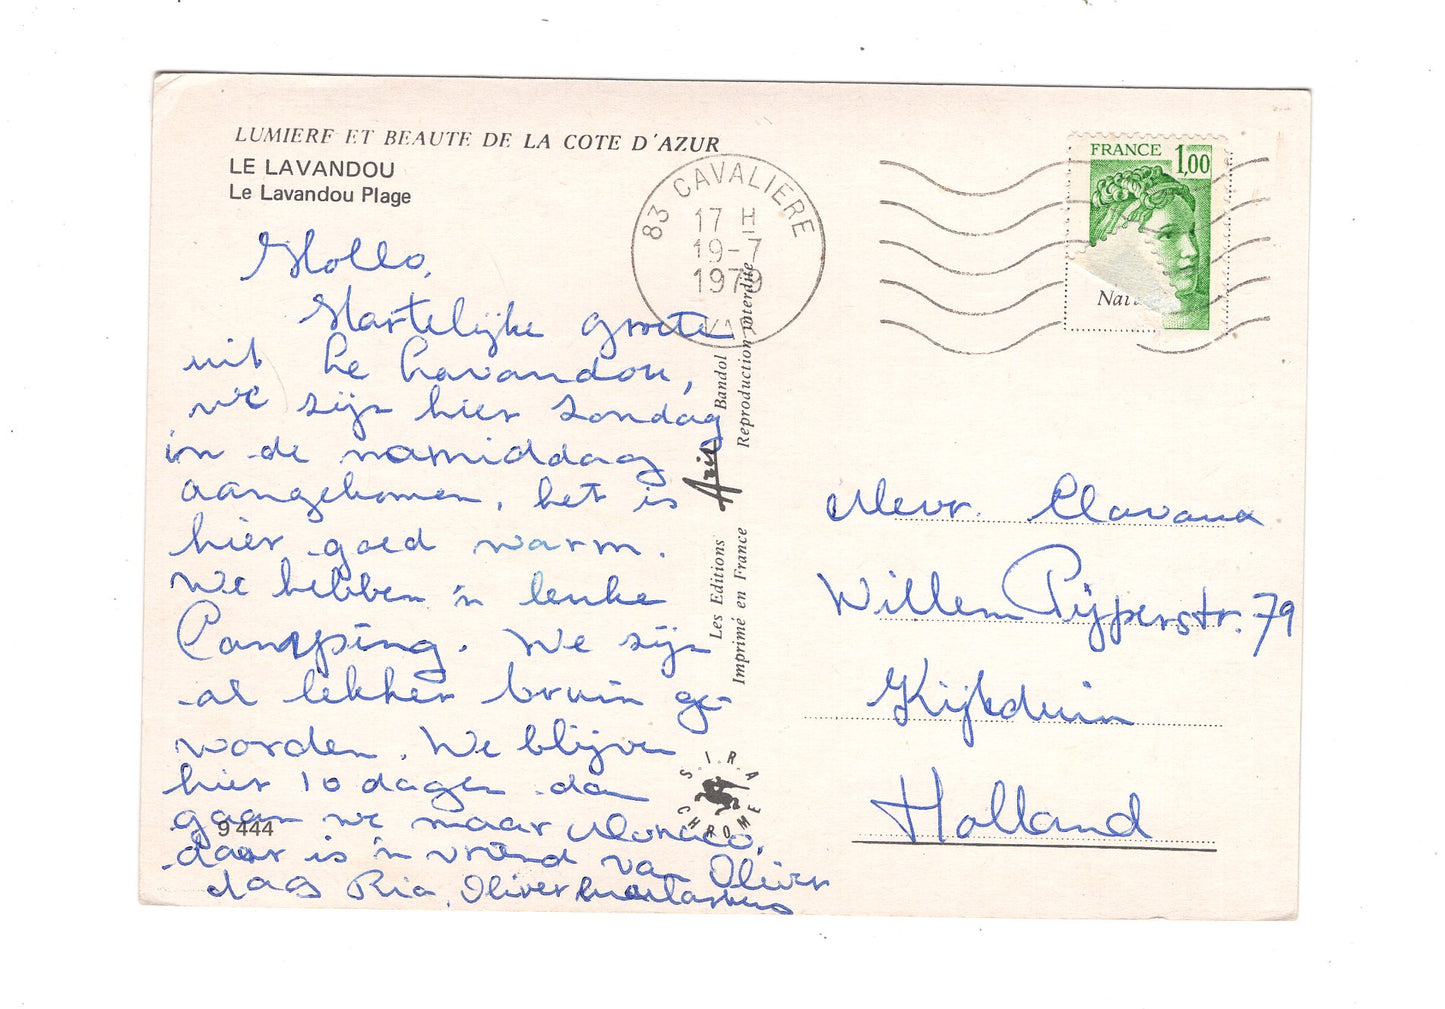 LUMIERE ET BEAUTE DE LA COTE D'AZUR
LE LAVANDOU
Le Lavandou Plage
83 CAVALIERE
17 H
19-7
1979
VAR
FRANCE 1,00
Hollo,
Hartelijke groete
uit Le Lavandou,
we zijn hier Zondag
in de namiddag
aangekomen, het is
hier goed warm.
We hebben 'n leuke
Camping. We zijn
al lekker bruin ge-
worden. We blijven
hier 10 dagen dan
gaan we naar Monaco,
daar is 'n vriend van Olivier
dag Ria, Oliver
9 444
Les Editions Aris Bandol
Imprimé en France Reproduction interdite
S.I.R.A
CHROME
Mevr. Clavaux
Willem Pijperstr. 79
Kijkduin
Holland